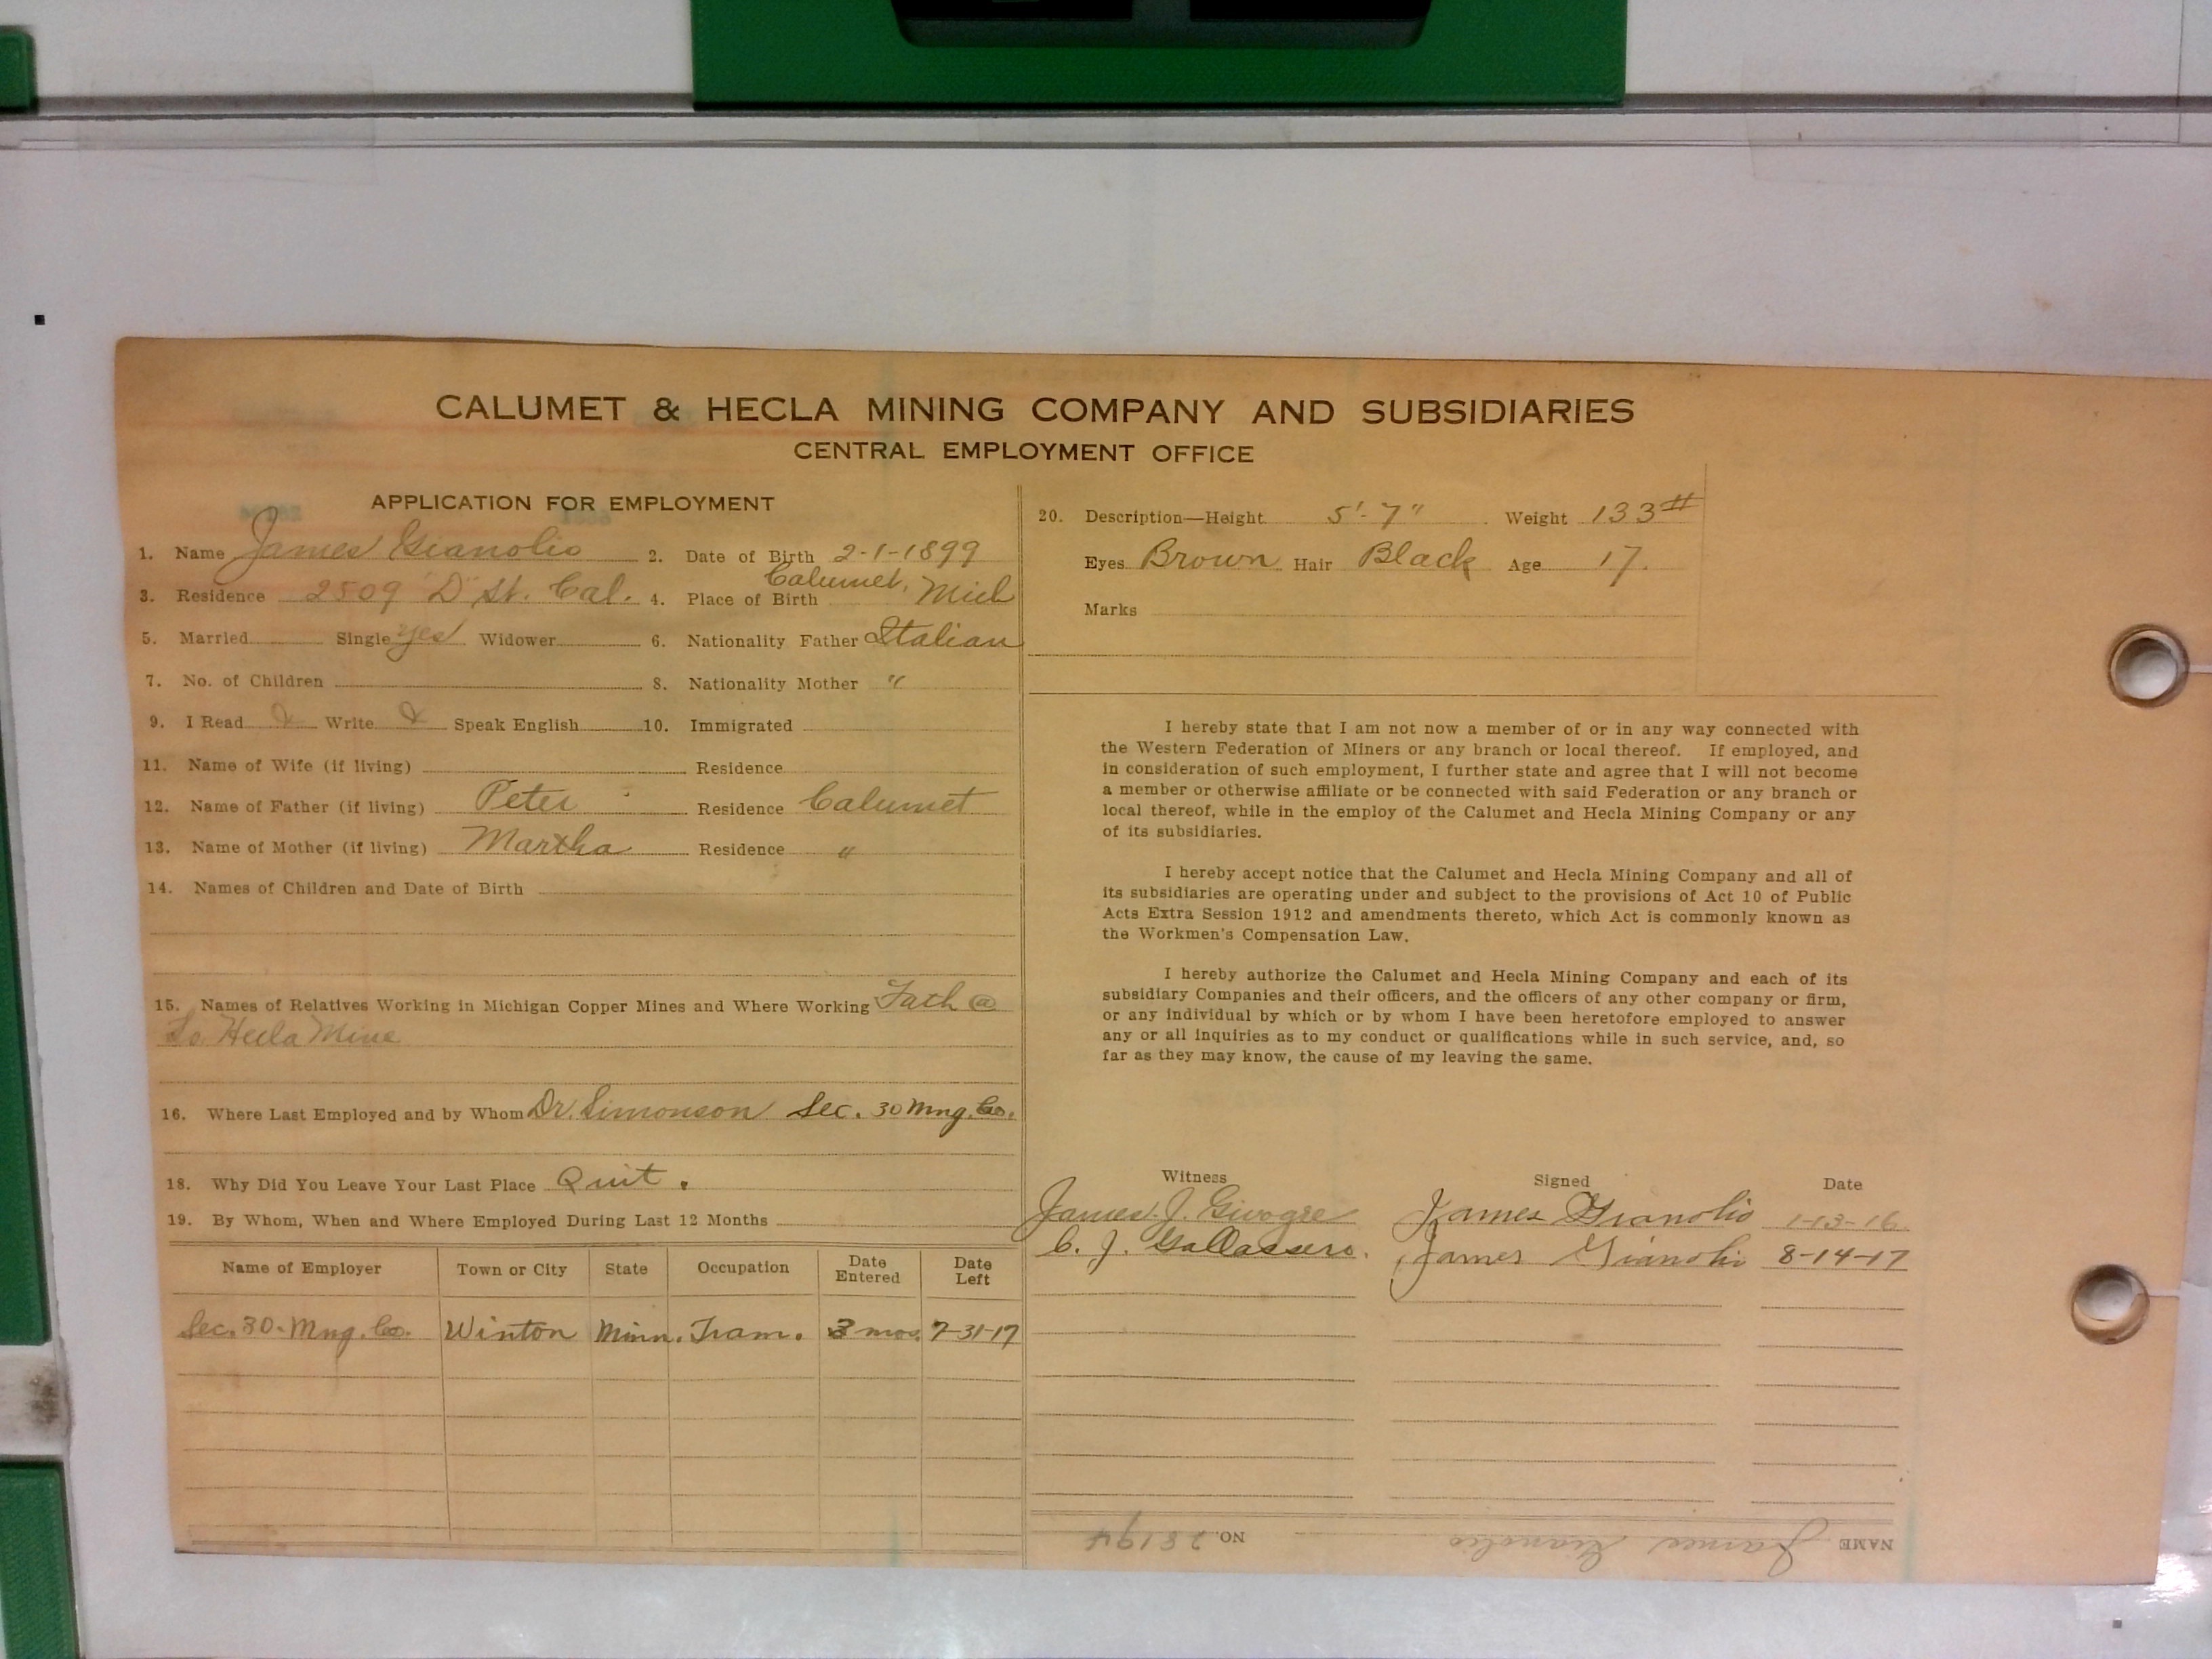 CALUMET & HECLA MINING COMPANY AND SUBSIDIARIES
CENTRAL EMPLOYMENT OFFICE
APPLICATION FOR EMPLOYMENT
1. Name James Gianolio 2. Date of Birth 2-1-1899
3. Residence 2509 "D" St. Cal. 4. Place of Birth Calumet, Mich
5. Married Single yes Widower 6. Nationality Father Italian
7. No. of Children 8. Nationality Mother "
9. I Read Write Speak English 10. Immigrated
11. Name of Wife (if living) Residence
12. Name of Father (if living) Peter Residence Calumet
13. Name of Mother (if living) Martha Residence "
14. Names of Children and Date of Birth
15. Names of Relatives Working in Michigan Copper Mines and Where Working Fath @
So. Hecla Mine
16. Where Last Employed and by Whom Dr. Simonson Sec. 30 Mng. Co.
18. Why Did You Leave Your Last Place Quit.
19. By Whom, When and Where Employed During Last 12 Months
Name of Employer Town or City State Occupation Date Entered Date Left
Sec. 30. Mng. Co. Winton Minn. Tram. 3 mos. 7-31-17
20. Description—Height 5'-7" Weight 133#
Eyes Brown Hair Black Age 17.
Marks
I hereby state that I am not now a member of or in any way connected with
the Western Federation of Miners or any branch or local thereof. If employed, and
in consideration of such employment, I further state and agree that I will not become
a member or otherwise affiliate or be connected with said Federation or any branch or
local thereof, while in the employ of the Calumet and Hecla Mining Company or any
of its subsidiaries.
I hereby accept notice that the Calumet and Hecla Mining Company and all of
its subsidiaries are operating under and subject to the provisions of Act 10 of Public
Acts Extra Session 1912 and amendments thereto, which Act is commonly known as
the Workmen's Compensation Law.
I hereby authorize the Calumet and Hecla Mining Company and each of its
subsidiary Companies and their officers, and the officers of any other company or firm,
or any individual by which or by whom I have been heretofore employed to answer
any or all inquiries as to my conduct or qualifications while in such service, and, so
far as they may know, the cause of my leaving the same.
Witness Signed Date
James J. James Gianolio 1-13-16
C. J. James Gianoli 8-14-17
NAME James Gianolio NO. 28194